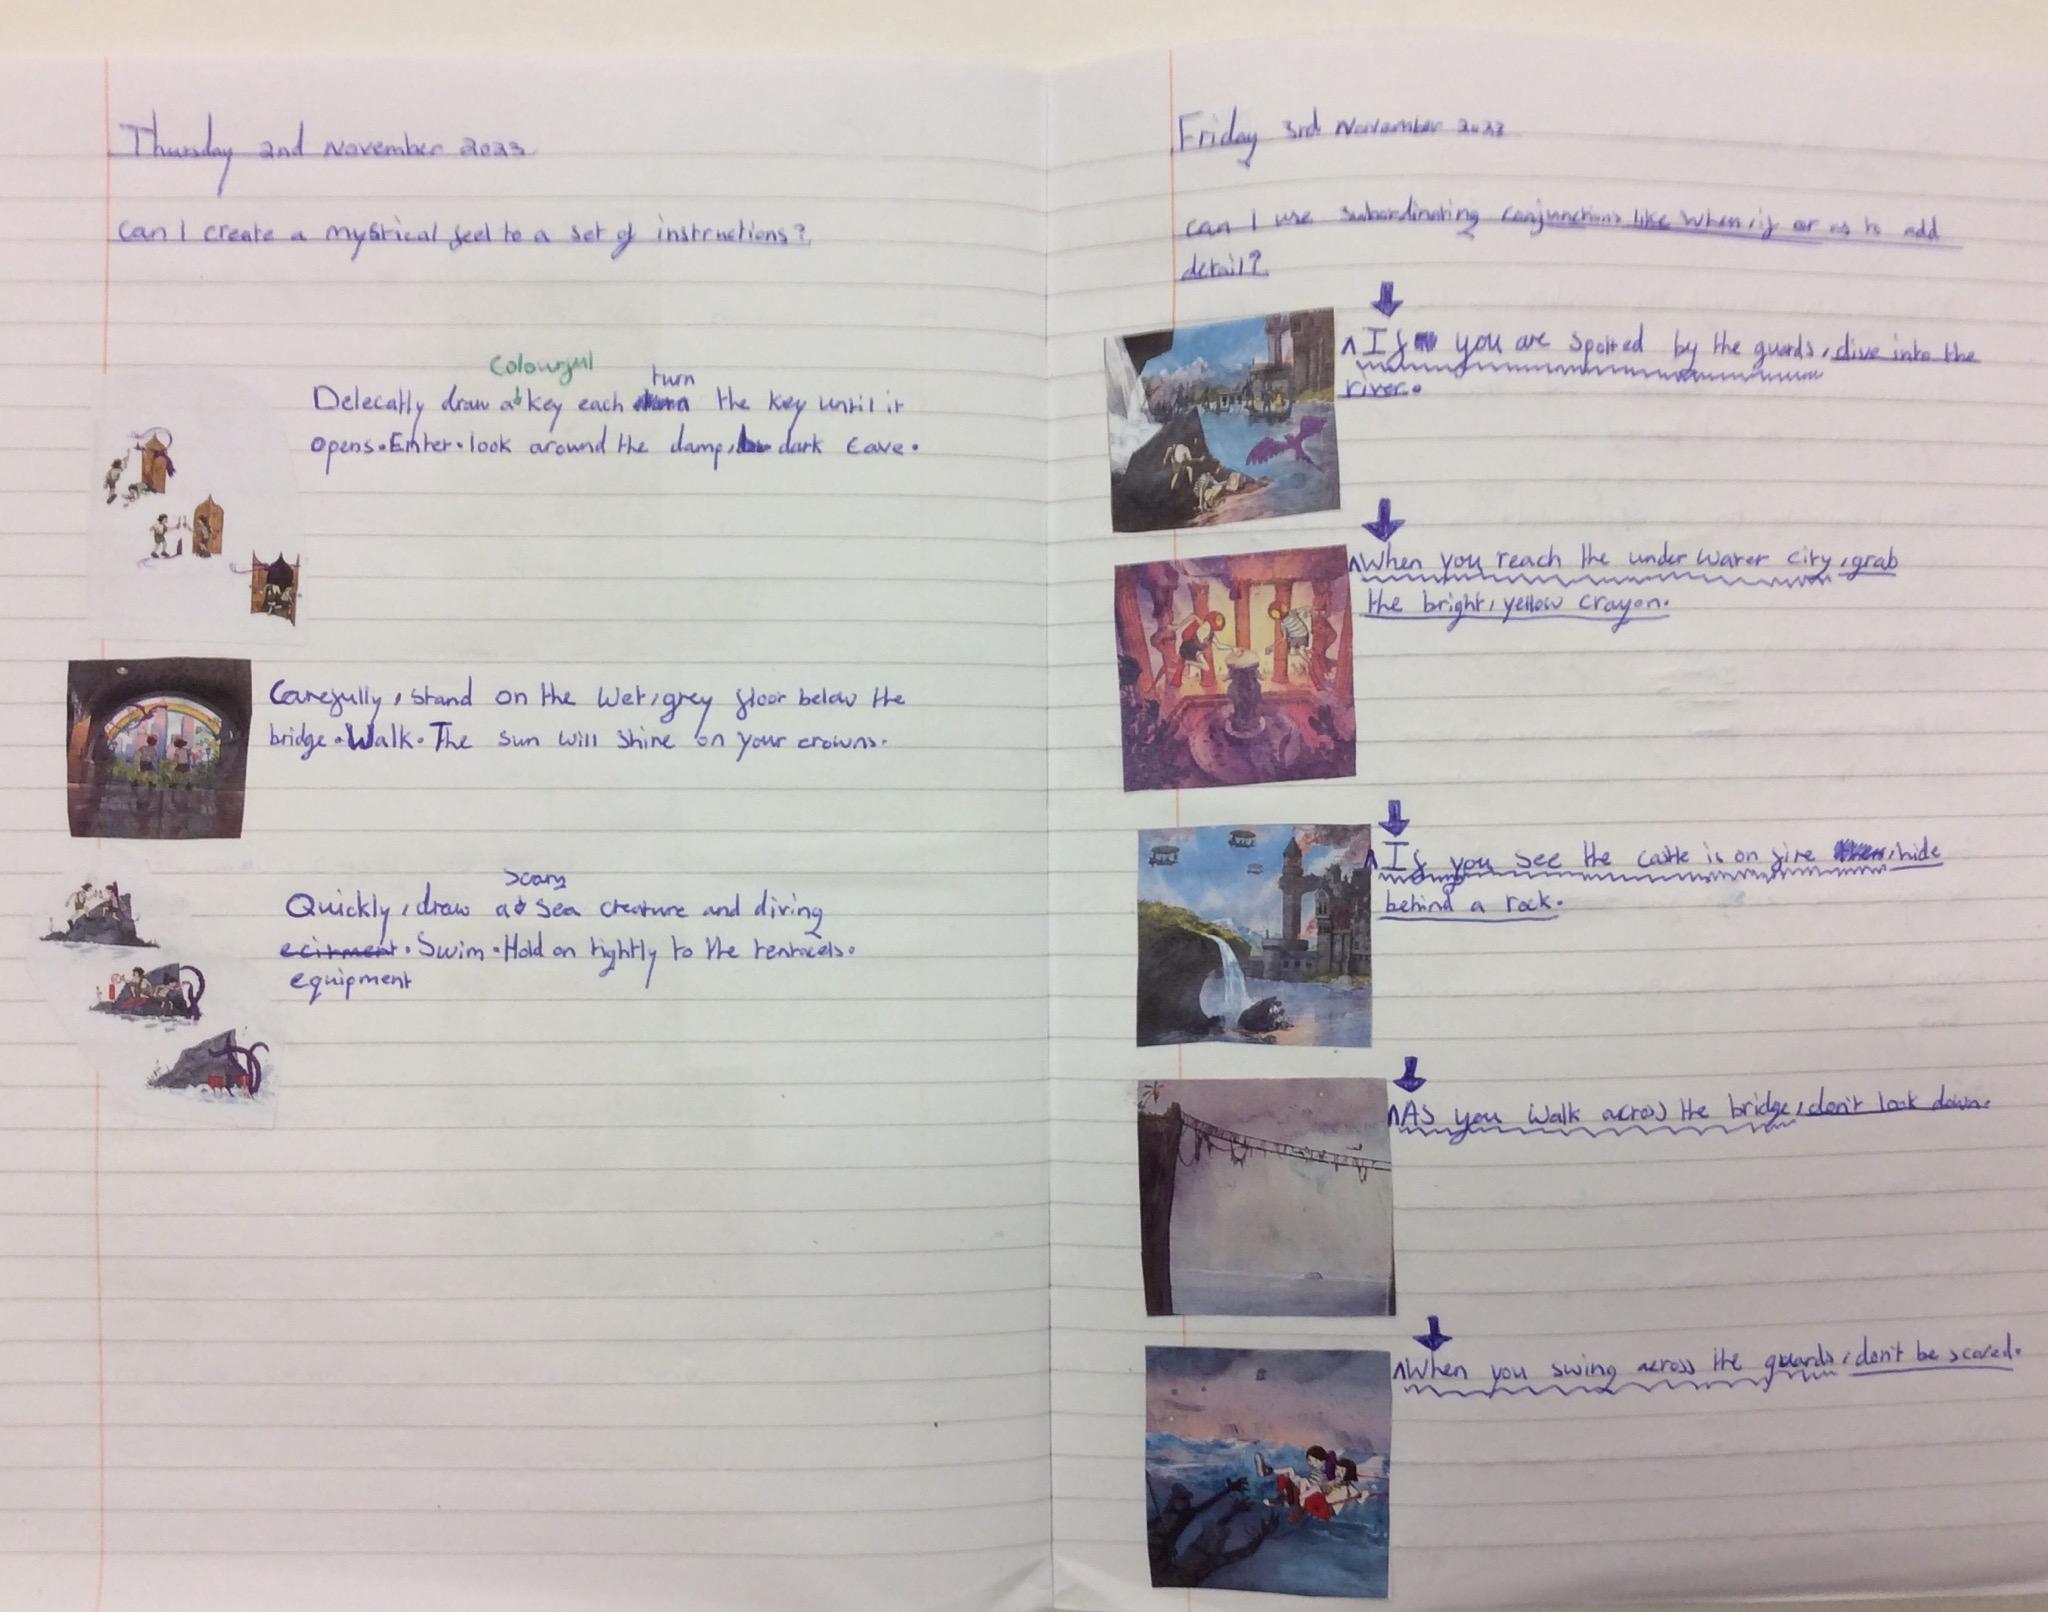 Thursday 2nd November 2023
Can I create a mystical feel to a set of instructions?
Colourful
turn
Delecatly draw a key each the key until it
opens. Enter. look around the damp, dark cave.
Carefully, stand on the wet, grey floor below the
bridge. Walk. The sun will shine on your crowns.
Scary
Quickly, draw a sea creature and diving
ecitment. Swim. Hold on tightly to the tentacels.
equipment
Friday 3rd November 2023
can I use subordinating conjunctions like when, if or as to add
detail?
If you are spotted by the guards, dive into the
river.
When you reach the under water city, grab
the bright, yellow crayon.
If you see the castle is on fire, hide
behind a rock.
As you walk across the bridge, don't look down.
When you swing across the guards, don't be scared.